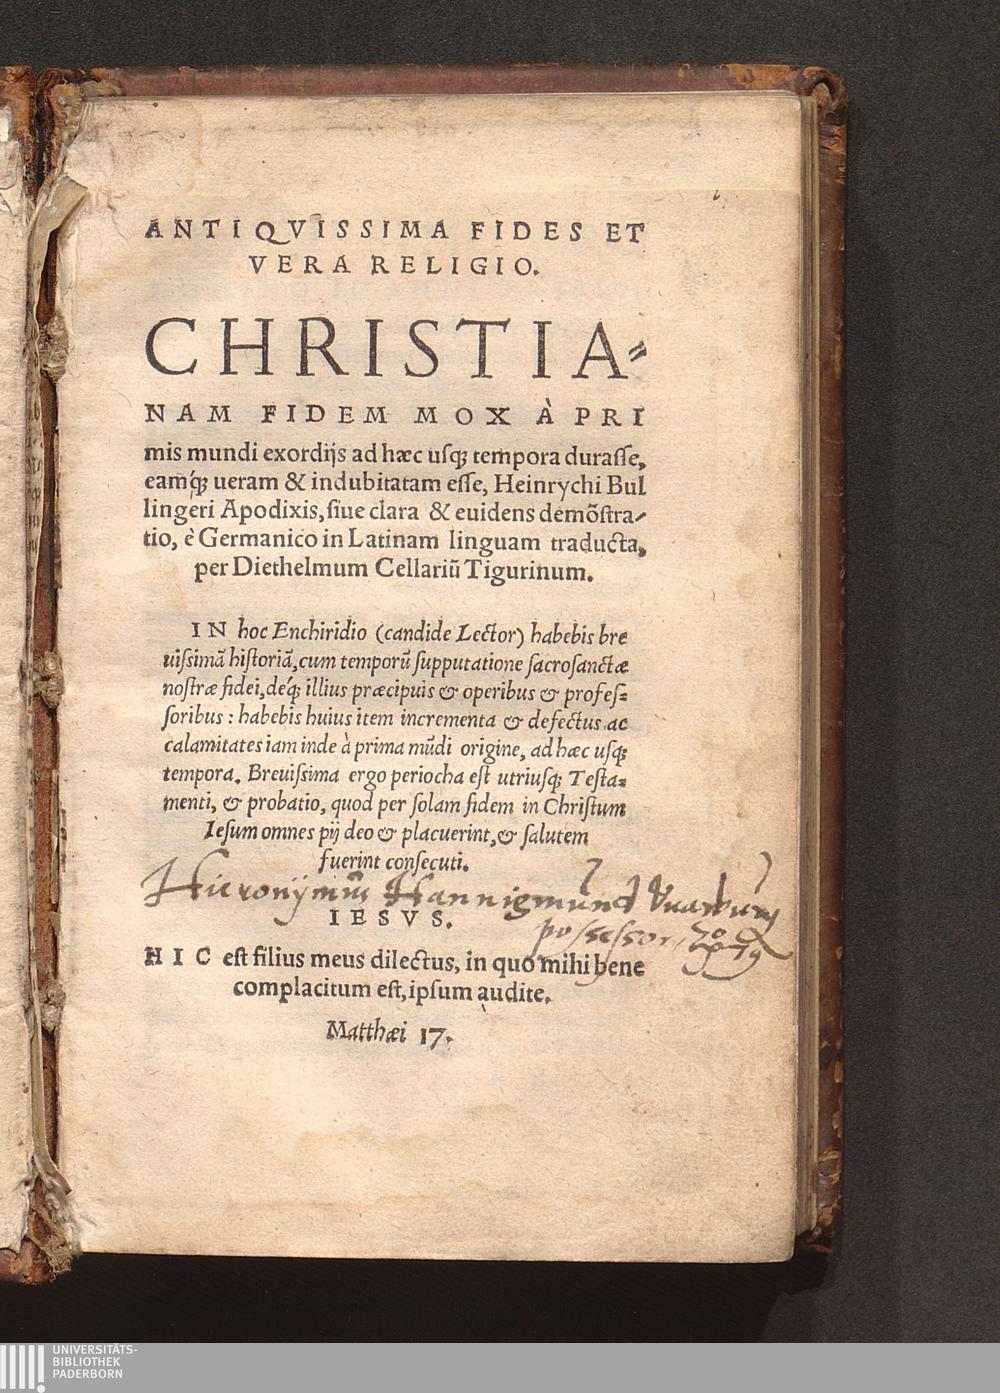 ANTIQVISSIMA FIDES ET
VERA RELIGIO.
CHRISTIA=
NAM FIDEM MOX À PRI
mis mundi exordijs ad hæc usq; tempora durasse,
eamq́; ueram & indubitatam esse, Heinrychi Bul
lingeri Apodixis, siue clara & euidens demõstra/
tio, è Germanico in Latinam linguam traducta,
per Diethelmum Cellariũ Tigurinum.
IN hoc Enchiridio (candide Lector) habebis bre
uissimã historiã, cum temporũ supputatione sacrosanctæ
nostræ fidei, déq; illius præcipuis & operibus & profes=
soribus: habebis huius item incrementa & defectus ac
calamitates iam inde à prima mũdi origine, ad hæc usq;
tempora. Breuissima ergo periocha est utriusq; Testa=
menti, & probatio, quod per solam fidem in Christum
Iesum omnes pij deo & placuerint, & salutem
fuerint consecuti.
Hieronÿmus
IESVS.
possessor
HIC est filius meus dilectus, in quo mihi bene
complacitum est, ipsum audite.
Matthæi 17.
UNIVERSITÄTS-
BIBLIOTHEK
PADERBORN